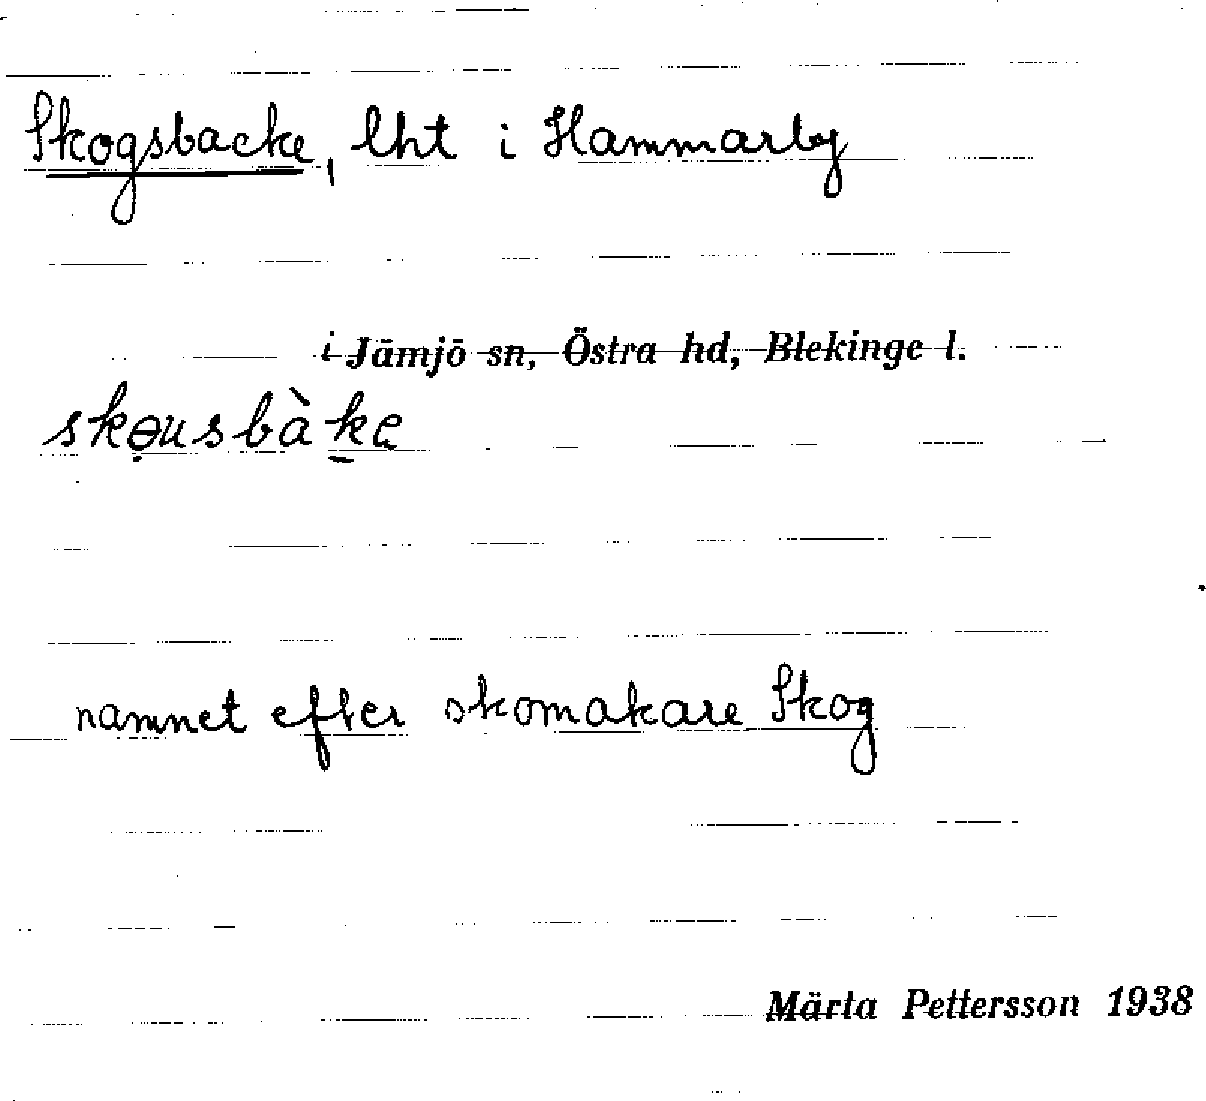 Skogsbacke, lht i Hammarby
i Jämjö sn, Östra hd, Blekinge l.
skɵ̣usbàk̠e̬
namnet efter skomakare Skog
Märta Pettersson 1938